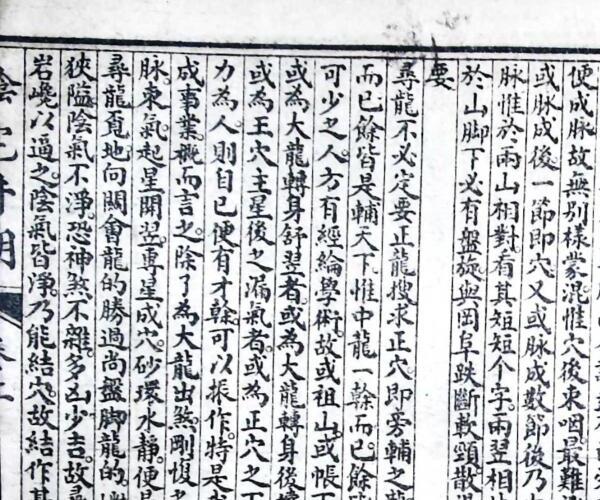 便成脉故無別樣蒙混惟穴後束咽最難
或脉成後一節即穴又或脉成數節後乃
脉惟於兩山相對看其短短个字兩翌相
於山脚下必有盤旋與岡阜跌斷軟頸散
要
尋龍不必定要正龍搜求正穴即旁輔之
而已餘皆是輔天下惟中龍一榦而已餘
可少之人方有經綸學術故或祖山或帳下
或為大龍轉身舒翌者或為大龍轉身後
或為王穴主星後之漏氣者或為正穴之
力為人則自己便有才榦可以振作特是
成事業概而言之除了為大龍出煞剛復之
脉束氣起星開翌專星成穴砂環水靜便是
尋龍覔地向關會龍的勝過尚盤脚龍的
狹隘陰氣不淨恐神煞不雜多凶少吉故
岩巉以適之陰氣皆淨乃能結穴故結作其